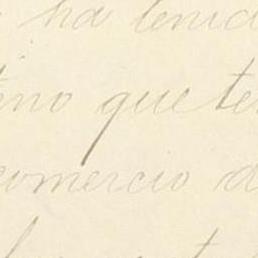 ha tenid
no que te
comercio d